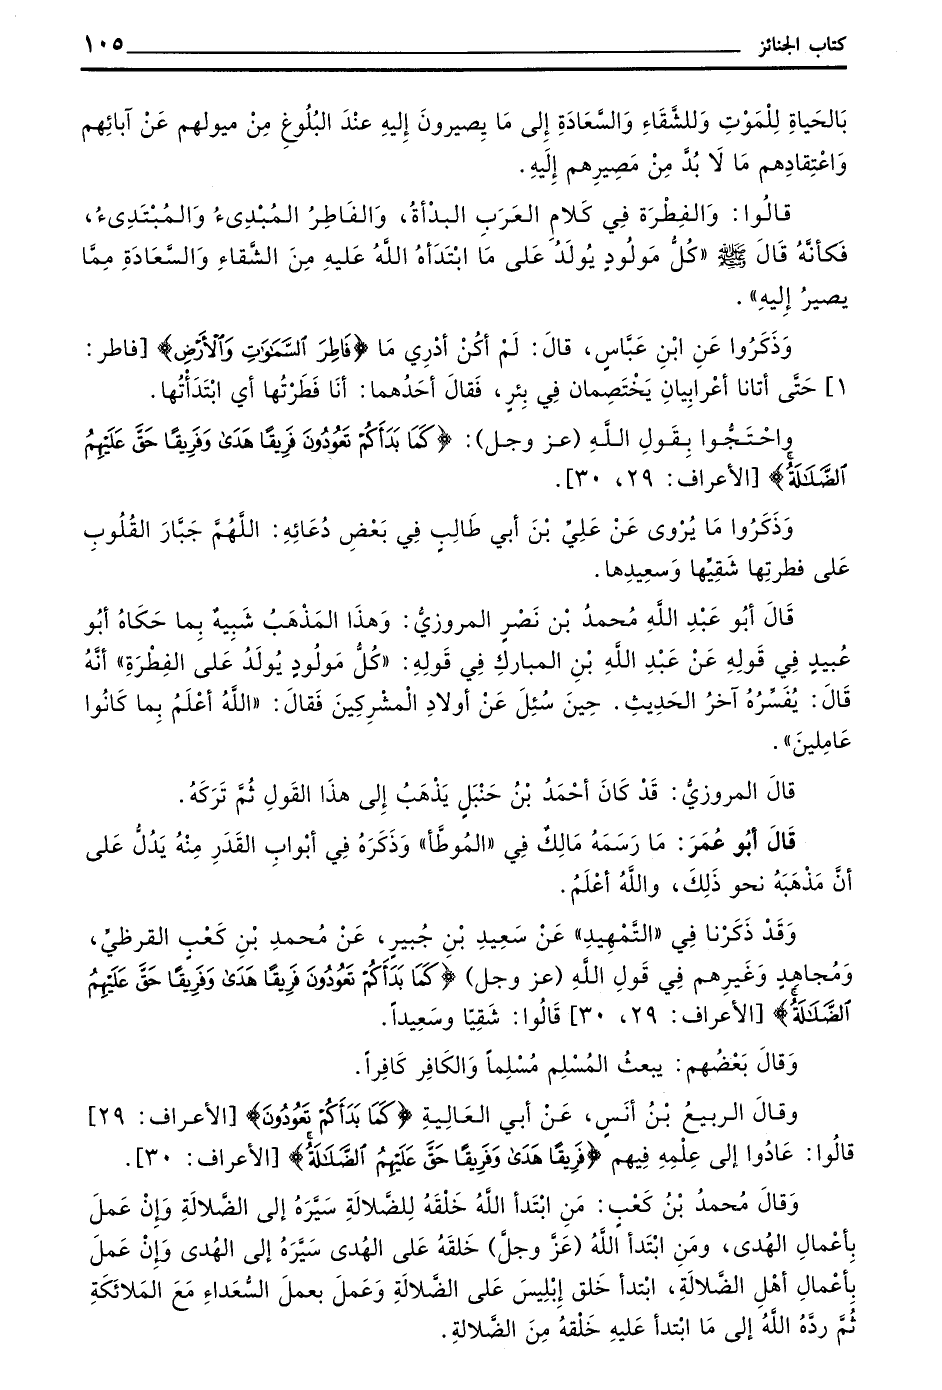 كتاب الجنائز ١٠٥
بَالحَياةِ لِلْمَوْتِ وَللشَّقَاءِ وَالسَّعَادَةِ إلى مَا يصيرونَ إليهِ عندَ البُلُوغِ مِنْ ميولهم عَنْ آبائِهم
وَاعْتِقادِهم مَا لَا بُدَّ مِنْ مَصِيرِهم إلَيهِ.
قالُوا: وَالفِطْرَة فِي كَلامِ العَرَبِ البدْأةُ، وَالفَاطِرُ المُبْدِىءُ وَالمُبْتَدِىءُ،
فَكأنَّهُ قَالَ ﷺ «كُلُّ مَولُودٍ يُولَدُ عَلى مَا ابْتَدَأهُ اللَّهُ عَليهِ مِنَ الشَّقاءِ وَالسَّعَادَةِ مِمَّا
يصيرُ إليهِ».
وَذَكَرُوا عَنِ ابْنِ عَبَّاسٍ، قالَ: لَمْ أكُنْ أدْرِي مَا ﴿فَاطِرَ ٱلسَّمَٰوَٰتِ وَٱلْأَرْضِ﴾ [فاطر:
١] حَتَّى أتانا أعْرابيانِ يَخْتَصِمان فِي بِئرٍ، فَقالَ أحَدُهما: أنَا فَطَرْتُها أي ابْتَدَأْتُها.
واحْتَجُّوا بِقَولِ اللَّهِ (عز وجل): ﴿كَمَا بَدَأَكُمْ تَعُودُونَ فَرِيقًا هَدَىٰ وَفَرِيقًا حَقَّ عَلَيْهِمُ
ٱلضَّلَٰلَةُ﴾ [الأعراف: ٢٩، ٣٠].
وَذَكَرُوا مَا يُرْوى عَنْ عَلِيِّ بْنَ أبي طَالِبٍ فِي بَعْضِ دُعَائِهِ: اللَّهُمَّ جَبَّارَ القُلُوبِ
عَلى فطرتِها شَقِيِّها وَسعِيدِها.
قَالَ أبُو عَبْدِ اللَّهِ مُحمدُ بْن نَصْرٍ المروزيُّ: وَهذَا المَذْهَبُ شَبِيهٌ بِما حَكَاهُ أبُو
عُبيدٍ فِي قَولِهِ عَنْ عَبْدِ اللَّهِ بْنِ المباركِ فِي قَولِهِ: «كُلُّ مَولُودٍ يُولَدُ عَلى الفِطْرَةِ» أنَّهُ
قَالَ: يُفَسِّرُهُ آخرُ الحَديثِ. حِينَ سُئِلَ عَنْ أولادِ الْمشْرِكِينَ فَقالَ: «اللَّهُ أعْلَمُ بِما كَانُوا
عَامِلينَ».
قالَ المروزيُّ: قَدْ كَانَ أحْمَدُ بْنُ حَنْبَلٍ يَذْهَبُ إلى هذَا القَولِ ثُمَّ تَرَكَهُ.
قَالَ أبُو عُمَرَ: مَا رَسَمَهُ مَالِكٌ فِي «المُوطَّأ» وَذَكَرَهُ فِي أبْوابِ القَدَرِ مِنْهُ يَدُلُّ عَلى
أنَّ مَذْهَبَهُ نحو ذَلِكَ، واللَّهُ أعْلَمُ.
وَقَدْ ذَكَرْنا فِي «التَّمْهِيدِ» عَنْ سَعِيدِ بْنِ جُبيرٍ، عَنْ مُحمدِ بْنِ كَعْبٍ القرظيِّ،
وَمُجاهِدٍ وَغَيرِهم فِي قَولِ اللَّهِ (عز وجل) ﴿كَمَا بَدَأَكُمْ تَعُودُونَ فَرِيقًا هَدَىٰ وَفَرِيقًا حَقَّ عَلَيْهِمُ
ٱلضَّلَٰلَةُ﴾ [الأعراف: ٢٩، ٣٠] قَالُوا: شَقِيًا وسَعِيداً.
وَقالَ بَعْضُهم: يبعثُ المُسْلِم مُسْلِماً وَالكَافِر كَافِراً.
وقالَ الربيعُ بْنُ أنَسٍ، عَنْ أبي العَالِيةِ ﴿كَمَا بَدَأَكُمْ تَعُودُونَ﴾ [الأعراف: ٢٩]
قالُوا: عَادُوا إلى عِلْمِهِ فِيهم ﴿فَرِيقًا هَدَىٰ وَفَرِيقًا حَقَّ عَلَيْهِمُ ٱلضَّلَٰلَةُ﴾ [الأعراف: ٣٠].
وَقَالَ مُحمدُ بْنُ كَعْبٍ: مَنِ ابْتَدأ اللَّهُ خَلْقَهُ لِلضَّلالَةِ سَيَّرَهُ إلى الضَّلالَةِ وَإنْ عَملَ
بِأعْمالِ الهُدى، ومَنِ ابْتَدأ اللَّهُ (عَزَّ وجلَّ) خَلقَهُ عَلى الهُدى سَيَّرَهُ إلى الهُدى وَإنْ عَملَ
بِأعْمالِ أهْلِ الضَّلالَةِ، ابْتدأ خَلق إبْلِيسَ عَلى الضَّلالَةِ وَعَملَ بعملِ السُّعَداءِ مَعَ المَلائكَةِ
ثُمَّ ردَّهُ اللَّهُ إلى مَا ابْتدأ عَليهِ خَلْقهُ مِنَ الضَّلالةِ.